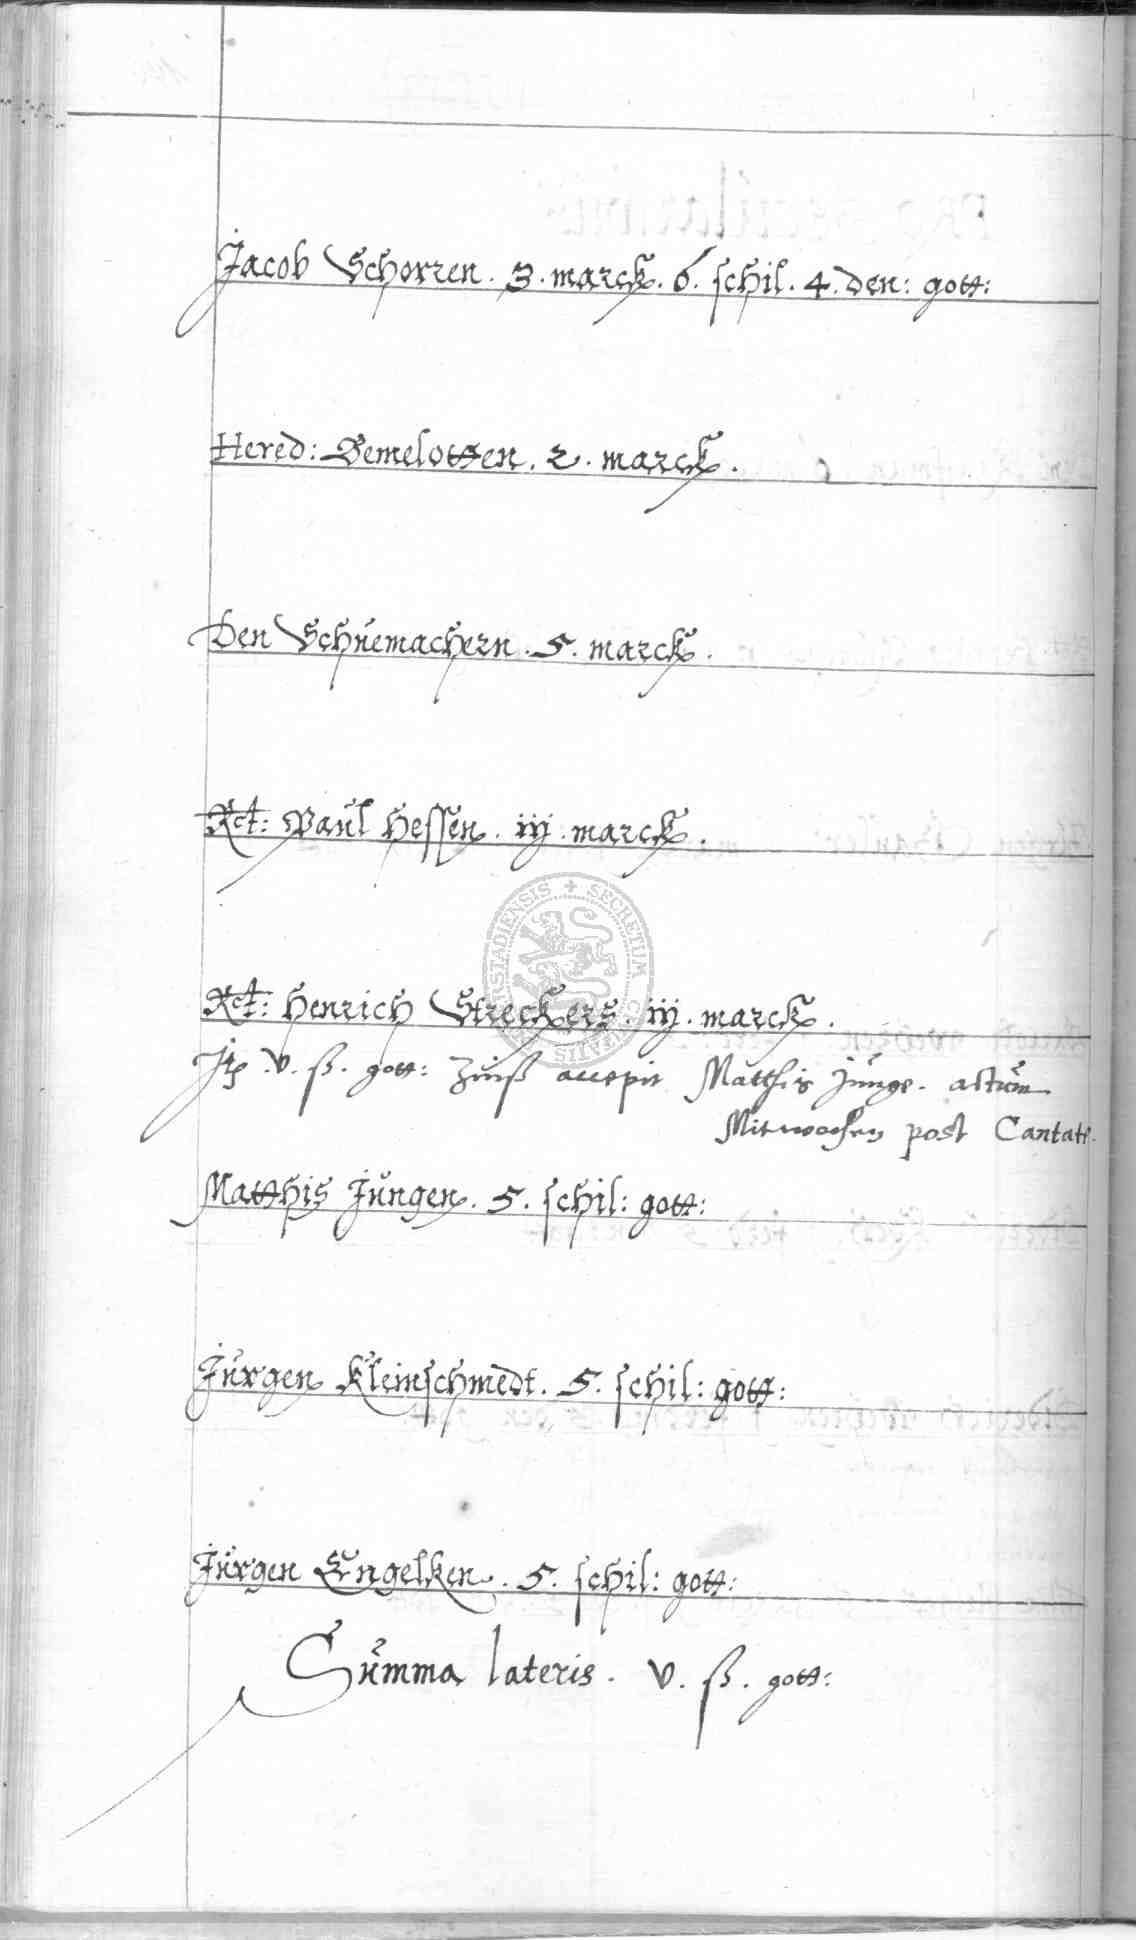 Jacob Schorren. 3. marck. 6. schil. 4. den: gott:
Hered: Bemelotten. 2. marck.
Den Schůemachern. 5. marck.
Rct: Paůl Hessen. iij. marck.
Rct: Henrich Streckers. iij. marck.
Jtz. v. ß. gott: Zinß accepit Matthis Junge. actům
Mitwochen post Cantate.
Matthis Jůngen. 5. schil: gott:
Jůrgen Kleinschmedt. 5. schil: gott:
Jůrgen Engelken. 5. schil: gott:
Sůmma lateris. v. ß. gott:
SECRETUM